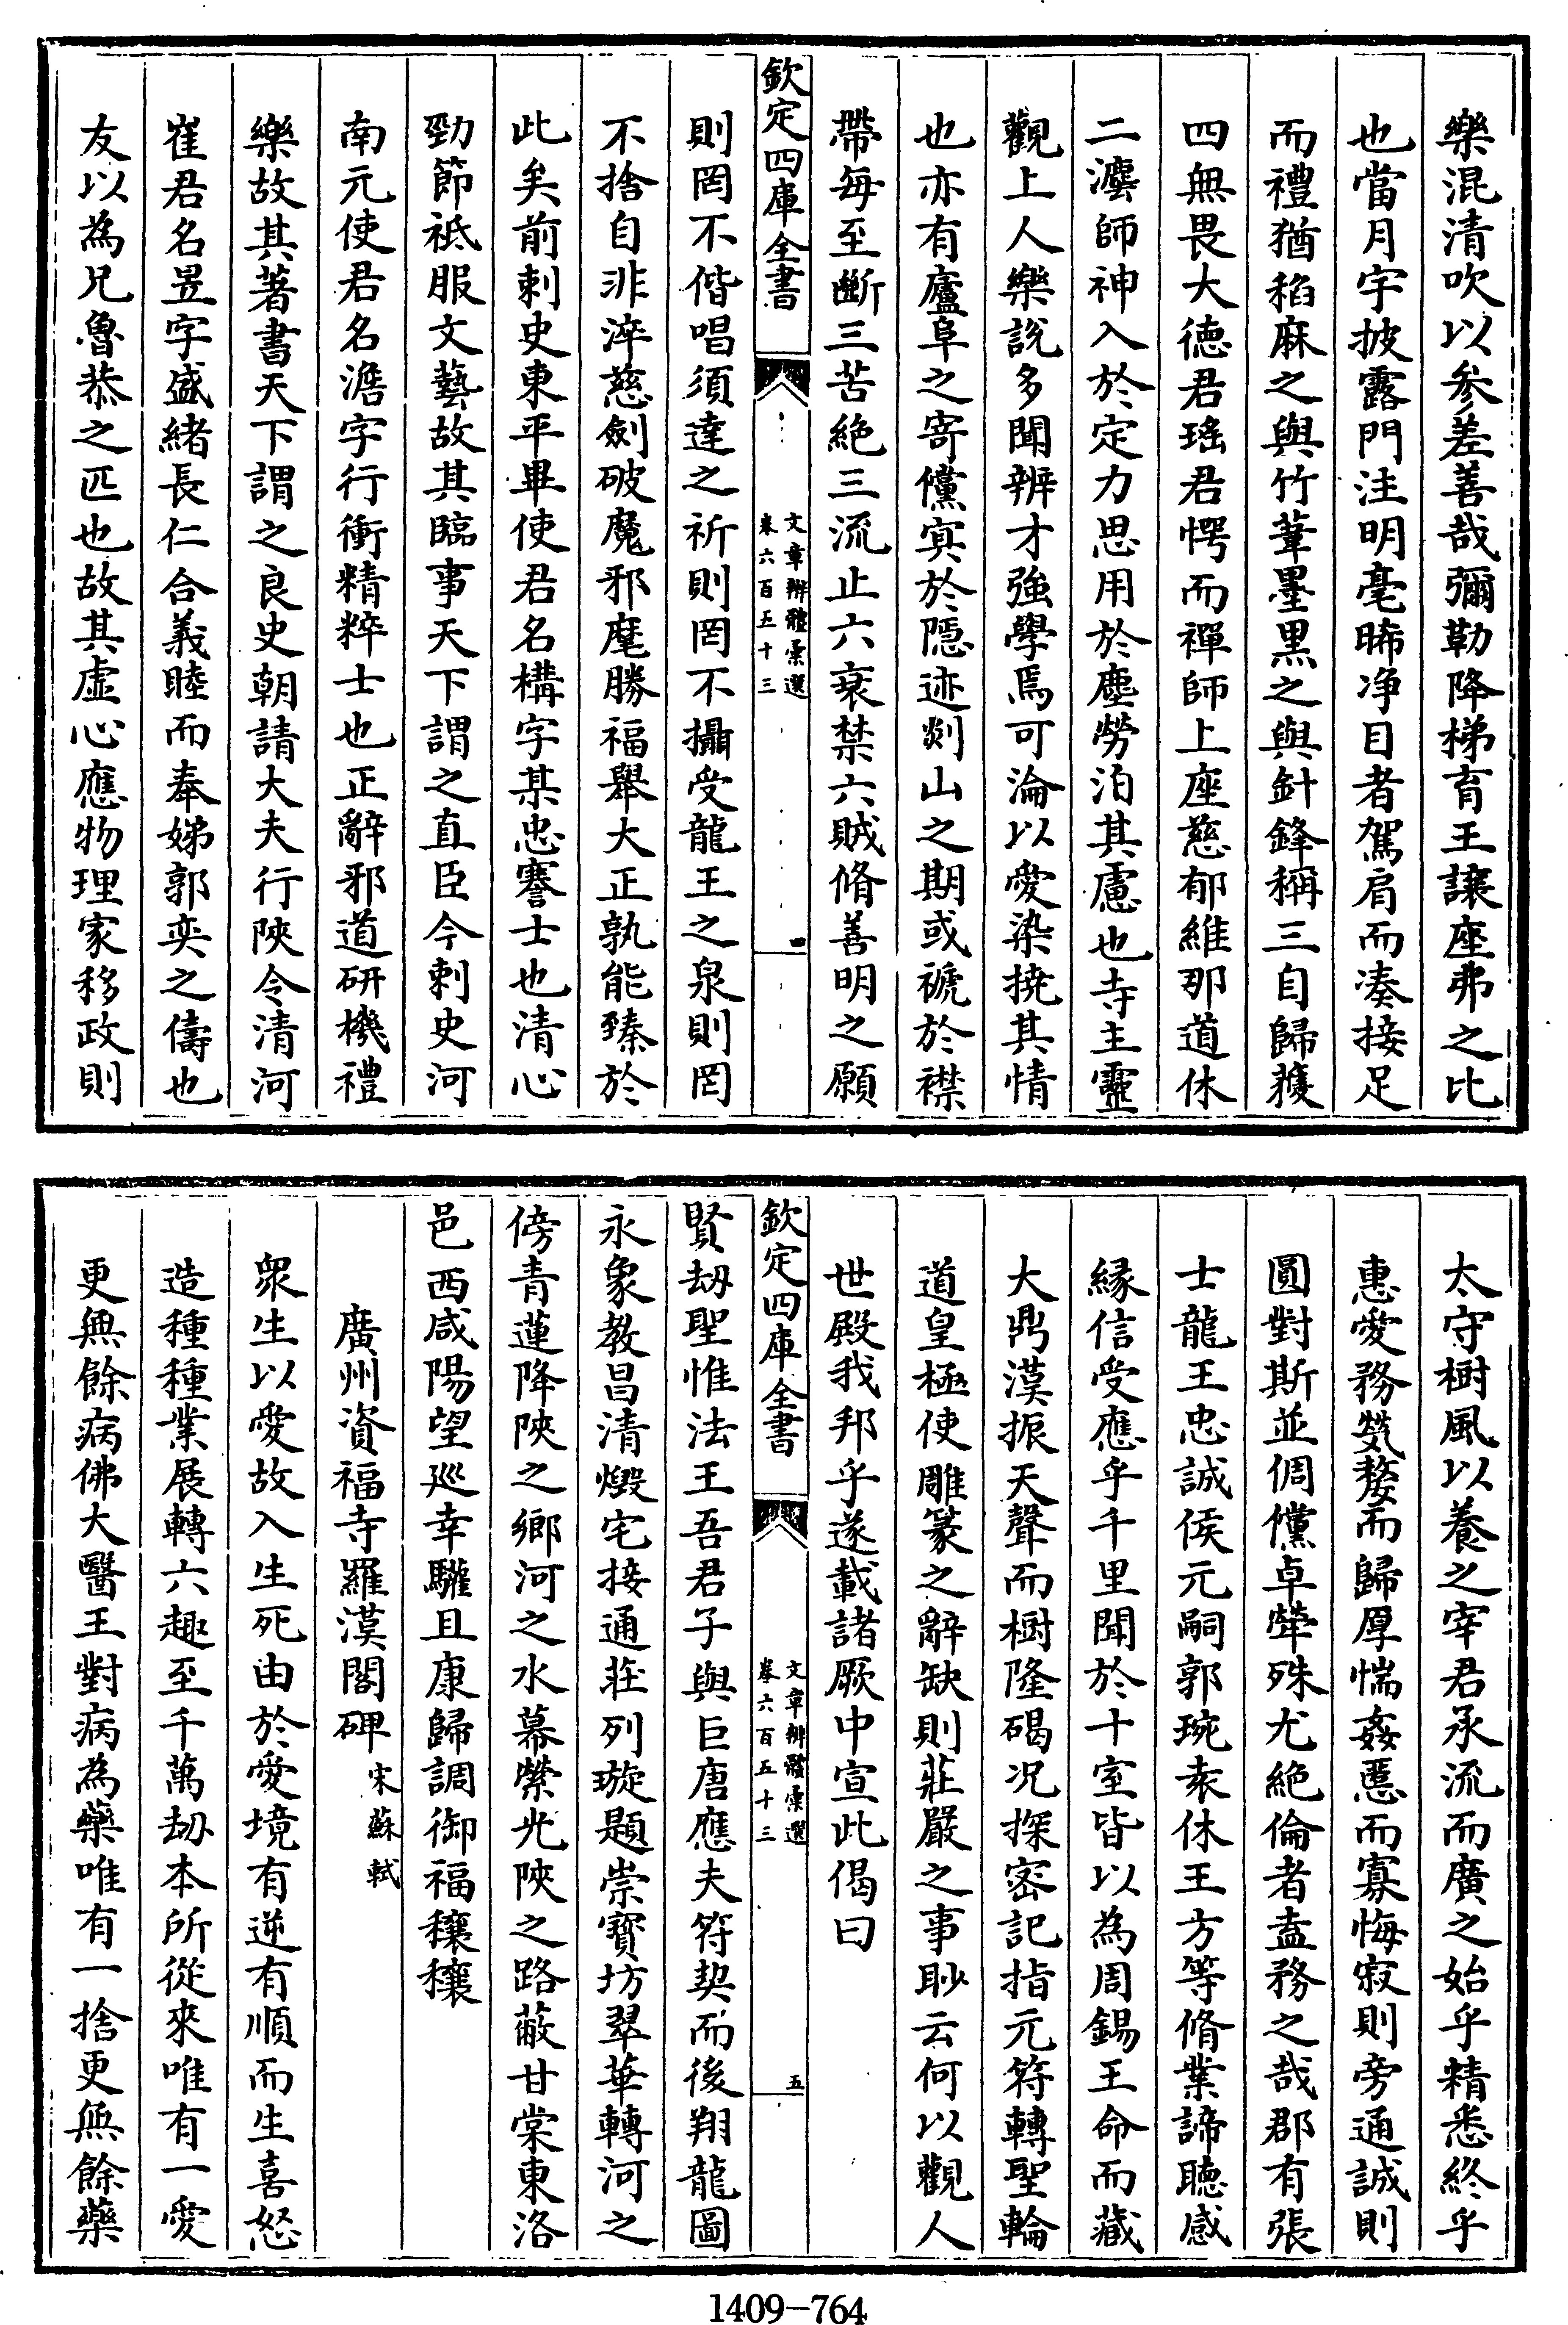 樂混清吹以參差善哉彌勒降梯育王讓座弗之比
也當月宇披露門注明毫晞净目者駕肩而凑接足
而禮猶稻麻之與竹葦墨黒之與針鋒稱三自歸獲
四無畏大徳君瑤君愕而禪師上座慈郁維那道休
二灋師神入於定力思用於塵勞泊其慮也寺主靈
觀上人樂說多聞辨才強學焉可淪以愛染撓其情
也亦有廬阜之寄儻寘於隱迹剡山之期或褫於襟
帶每至斷三苦絶三流止六衰禁六賊脩善明之願
欽定四庫全書
文章辨體彚選
卷六百五十三
四
則罔不偕唱須達之祈則罔不攝受龍王之泉則罔
不捨自非淬慈劍破魔邪麾勝福舉大正孰能臻於
此矣前刺史東平畢使君名構字某忠謇士也清心
勁節祗服文藝故其臨事天下謂之直臣今刺史河
南元使君名澹字行衝精粹士也正辭邪道研機禮
樂故其著書天下謂之良史朝請大夫行陜令清河
崔君名昱字盛緒長仁合義睦而奉娣郭奕之儔也
友以為兄魯恭之匹也故其虚心應物理家移政則
太守樹風以養之宰君承流而廣之始乎精悉終乎
惠愛務煢嫠而歸厚惴姦慝而寡悔寂則旁通誠則
圓對斯並倜儻卓犖殊尤絶倫者盍務之哉郡有張
士龍王忠誠侯元嗣郭琬袁休王方等脩業諦聽感
縁信受應乎千里聞於十室皆以為周錫王命而藏
大鼎漢振天聲而樹隆碣况探宻記指元符轉聖輪
道皇極使雕篆之辭缺則莊嚴之事眇云何以觀人
世殿我邦乎遂載諸厥中宣此偈曰
欽定四庫全書
文章辨體彚選
卷六百五十三
五
賢劫聖惟法王吾君子與巨唐應夫符契而後翔龍圖
永象教昌清燬宅接通莊列璇題崇寳坊翠華轉河之
傍青蓮降陜之鄉河之水幕榮光陜之路蔽甘棠東洛
邑西咸陽望廵幸驩且康歸調御福穰穰
廣州資福寺羅漢閣碑 宋蘇軾
衆生以愛故入生死由於愛境有逆有順而生喜怒
造種種業展轉六趣至千萬劫本所從來唯有一愛
更無餘病佛大醫王對病為藥唯有一捨更無餘藥
1409-764